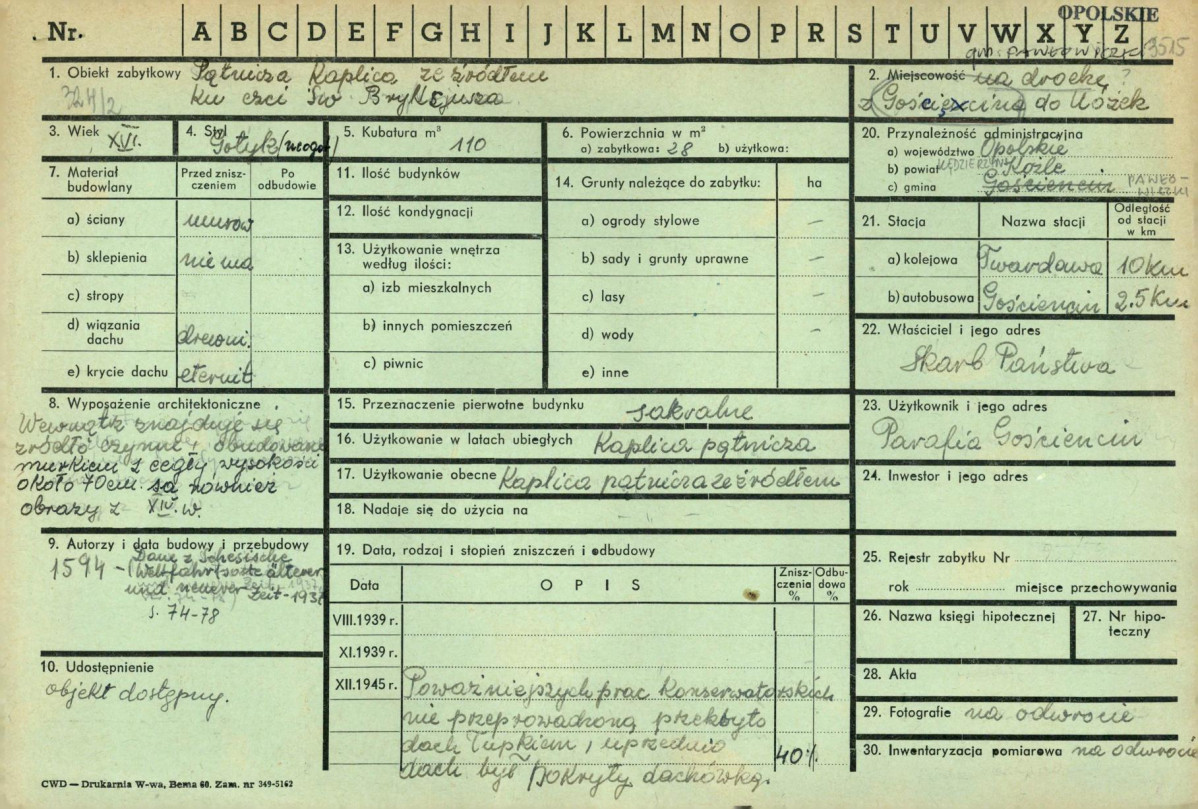 OPOLSKIE
Nr. A B C D E F G H I J K L M N O P R S T U V W X Y Z
gm. PAWŁOWICZKI 3515
1. Obiekt zabytkowy Pątnicza Kaplica ze źródłem
324/2 ku czci Św Brykcjusza
2. Miejscowość na drodze?
z Gościęcina do Łóżek
3. Wiek XVI.
4. Styl Gotyk/neogot/
5. Kubatura m³ 110
6. Powierzchnia w m²
a) zabytkowa: 28 b) użytkowa:
7. Materiał budowlany
Przed zniszczeniem
Po odbudowie
a) ściany murow
b) sklepienia niema
c) stropy
d) wiązania dachu drewni.
e) krycie dachu eternit
8. Wyposażenie architektoniczne
Wewnątrz znajduje się
źródło czynne, obudowane
murkiem z cegły wysokości
około 70cm. są również
obrazy z XIV. w.
9. Autorzy i data budowy i przebudowy
1594 - (Dane z Schesische
Wallfahrtsorte älterer
und neuerer Zeit - 193
s. 74-78
10. Udostępnienie
objekt dostępny.
11. Ilość budynków
12. Ilość kondygnacji
13. Użytkowanie wnętrza
według ilości:
a) izb mieszkalnych
b) innych pomieszczeń
c) piwnic
14. Grunty należące do zabytku: ha
a) ogrody stylowe –
b) sady i grunty uprawne –
c) lasy –
d) wody –
e) inne
15. Przeznaczenie pierwotne budynku sakralne
16. Użytkowanie w latach ubiegłych Kaplica pątnicza
17. Użytkowanie obecne Kaplica pątnicza ze źródłem
18. Nadaje się do użycia na – –
19. Data, rodzaj i stopień zniszczeń i odbudowy
Data OPIS Zniszczenia % Odbudowa %
VIII.1939 r.
XI.1939 r.
XII.1945 r. Poważniejszych prac konserwatorskich
nie przeprowadzono przekryto
dach łupkiem, uprzednio
dach był pokryty dachówką. 40%
20. Przynależność administracyjna
a) województwo Opolskie
b) powiat KĘDZIERZYN Koźle
c) gmina Gościencin PAWŁOWICZKI
21. Stacja Nazwa stacji Odległość od stacji w km
a) kolejowa Twardawa 10 km
b) autobusowa Gościencin 2.5 km
22. Właściciel i jego adres
Skarb Państwa
23. Użytkownik i jego adres
Parafia Gościencin
24. Inwestor i jego adres
25. Rejestr zabytku Nr
rok miejsce przechowywania
26. Nazwa księgi hipotecznej
27. Nr hipoteczny
28. Akta
29. Fotografie na odwrocie
30. Inwentaryzacja pomiarowa na odwrocie
CWD — Drukarnia W-wa, Bema 60. Zam. nr 349-5162